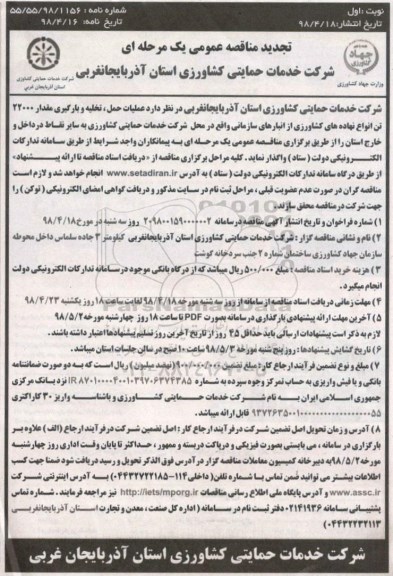 نوبت: اول
شماره نامه : ۵۵/۵۵/۹۸/۱۱۵۶
تاریخ انتشار: ۹۸/۴/۱۸
تاریخ نامه: ۹۸/۴/۱۶
تجدید مناقصه عمومی یک مرحله ای
شرکت خدمات حمایتی کشاورزی استان آذربایجانغربی
وزارت جهاد کشاورزی
شرکت خدمات حمایتی کشاورزی
استان آذربایجان غربی
شرکت خدمات حمایتی کشاورزی استان آذربایجانغربی در نظر دارد عملیات حمل ، تخلیه و بارگیری مقدار ۲۲۰۰۰
تن انواع نهاده های کشاورزی از انبارهای سازمانی واقع در محل شرکت خدمات حمایتی کشاورزی به سایر نقاط در داخل و
خارج استان را از طریق برگزاری مناقصه عمومی یک مرحله ای به پیمانکاران واجد شرایط از طریق سامانه تدارکات
الکترونیکی دولت ( ستاد ) واگذار نماید . کلیه مراحل برگزاری مناقصه از « دریافت اسناد مناقصه تا ارائه پیشنهاد»
از طریق درگاه سامانه تدارکات الکترونیکی دولت ( ستاد ) به آدرس www.setadiran.ir انجام خواهد شد و لازم است
مناقصه گران در صورت عدم عضویت قبلی ، مراحل ثبت نام در سایت مذکور و دریافت گواهی امضای الکترونیکی ( توکن ) را
جهت شرکت در مناقصه محقق سازند.
۱) شماره فراخوان و تاریخ انتشار آگهی مناقصه در سامانه ۲۰۹۸۰۰۱۵۹۰۰۰۰۰۰۲ روز سه شنبه در مورخ ۹۸/۴/۱۸
۲) نام و نشانی مناقصه گزار : شرکت خدمات حمایتی کشاورزی استان آذربایجانغربی کیلومتر ۳ جاده سلماس داخل محوطه
سازمان جهاد کشاورزی ساختمان شماره ۲ جنب سردخانه گوشت
۳) هزینه خرید اسناد مناقصه : مبلغ ۵۰۰/۰۰۰ ریال میباشد که از درگاه بانکی موجود در سامانه تدارکات الکترونیکی دولت
انجام میگیرد.
۴) مهلت زمانی دریافت اسناد مناقصه از سامانه از روز سه شنبه مورخه ۹۸/۴/۱۸ لغایت ساعت ۱۸ روز یکشنبه ۹۸/۴/۲۳
۵) آخرین مهلت ارائه پیشنهادی بارگذاری در سامانه بصورت PDF تا ساعت ۱۸ روز چهارشنبه مورخه ۹۸/۵/۲
لازم به ذکر است پیشنهادات ارسالی باید حداقل ۴۵ روز از تاریخ آخرین روز تسلیم پیشنهادها اعتبار داشته باشند.
۶) تاریخ گشایش پیشنهادها : روز پنج شنبه مورخه ۹۸/۵/۳ ساعت ۱۰ صبح در سالن جلسات استان میباشد.
۷) مبلغ و نوع تضمین فرآیند ارجاع کار : مبلغ تضمین ۹۰۰٬۰۰۰٬۰۰۰ (نهصد میلیون ) ریال است که به دو صورت ضمانتنامه
بانکی و یا فیش واریزی به حساب تمرکز وجوه سپرده به شماره IR ۸۷۰۱۰۰۰۰۴۰۰۱۰۳۹۷۰۶۳۷۴۳۸۵ نزد بانک مرکزی
جمهوری اسلامی ایران به نام شرکت خدمات حمایتی کشاورزی و باشناسه واریز ۳۰ کاراکتری
قابل ارائه میباشد.
۸) آدرس و زمان تحویل اصل تضمین شرکت در فرآیند ارجاع کار : اصل تضمین شرکت در فرآیند ارجاع (الف) علاوه بر
بارگزاری در سامانه ، می بایستی بصورت فیزیکی و درپاکت دربسته و ممهور ، حداکثر تا پایان وقت اداری روز چهارشنبه
مورخه ۹۸/۵/۲ به دبیر خانه کمیسیون معاملات مناقصه گزار در آدرس فوق الذکر تحویل و رسید دریافت شود ضمنا جهت کسب
اطلاعات بیشتر می توانید ضمن تماس با شماره تلفن( داخلی ۱۱۴-۰۴۴۳۲۷۲۲۱۸۵) به آدرس اینترنتی شرکت
www.assc.ir و آدرس پایگاه ملی اطلاع رسانی مناقصات http://iets/mporg.ir نیز مراجعه فرمایند . شماره تماس
پشتیبانی سامانه ۰۲۱۴۱۹۳۶ دفتر ثبت نام در سامانه ( اداره کل صنعت ، معدن و تجارت استان آذربایجانغربی
۰۴۴۳۲۲۳۲۱۱۳)
شرکت خدمات حمایتی کشاورزی استان آذربایجان غربی